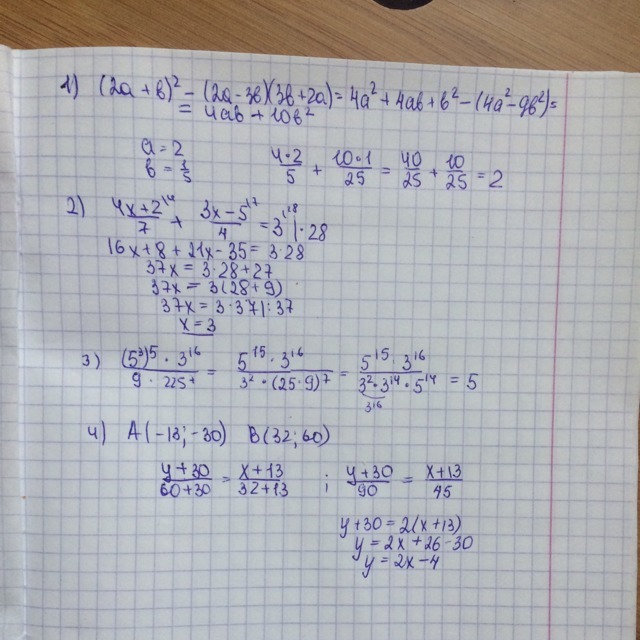 1) (2a + b)² - (2a - 3b)(3b + 2a) = 4a² + 4ab + b² - (4a² - 9b²) =
= 4ab + 10b²
a = 2
b = 1/5
4·2/5 + 10·1/25 = 40/25 + 10/25 = 2
2) 4x+2/7 + 3x-5/4 = 3 | · 28
16x + 8 + 21x - 35 = 3·28
37x = 3·28 + 27
37x = 3(28 + 9)
37x = 3·37 | : 37
x = 3
3) (5³)⁵ · 3¹⁶ / 9 · 225⁷ = 5¹⁵ · 3¹⁶ / 3² · (25·9)⁷ = 5¹⁵ · 3¹⁶ / 3² · 3¹⁴ · 5¹⁴ = 5
3¹⁶
4) A(-13; -30) B(32; 60)
y+30 / 60+30 = x+13 / 32+13 ; y+30 / 90 = x+13 / 45
y + 30 = 2(x + 13)
y = 2x + 26 - 30
y = 2x - 4